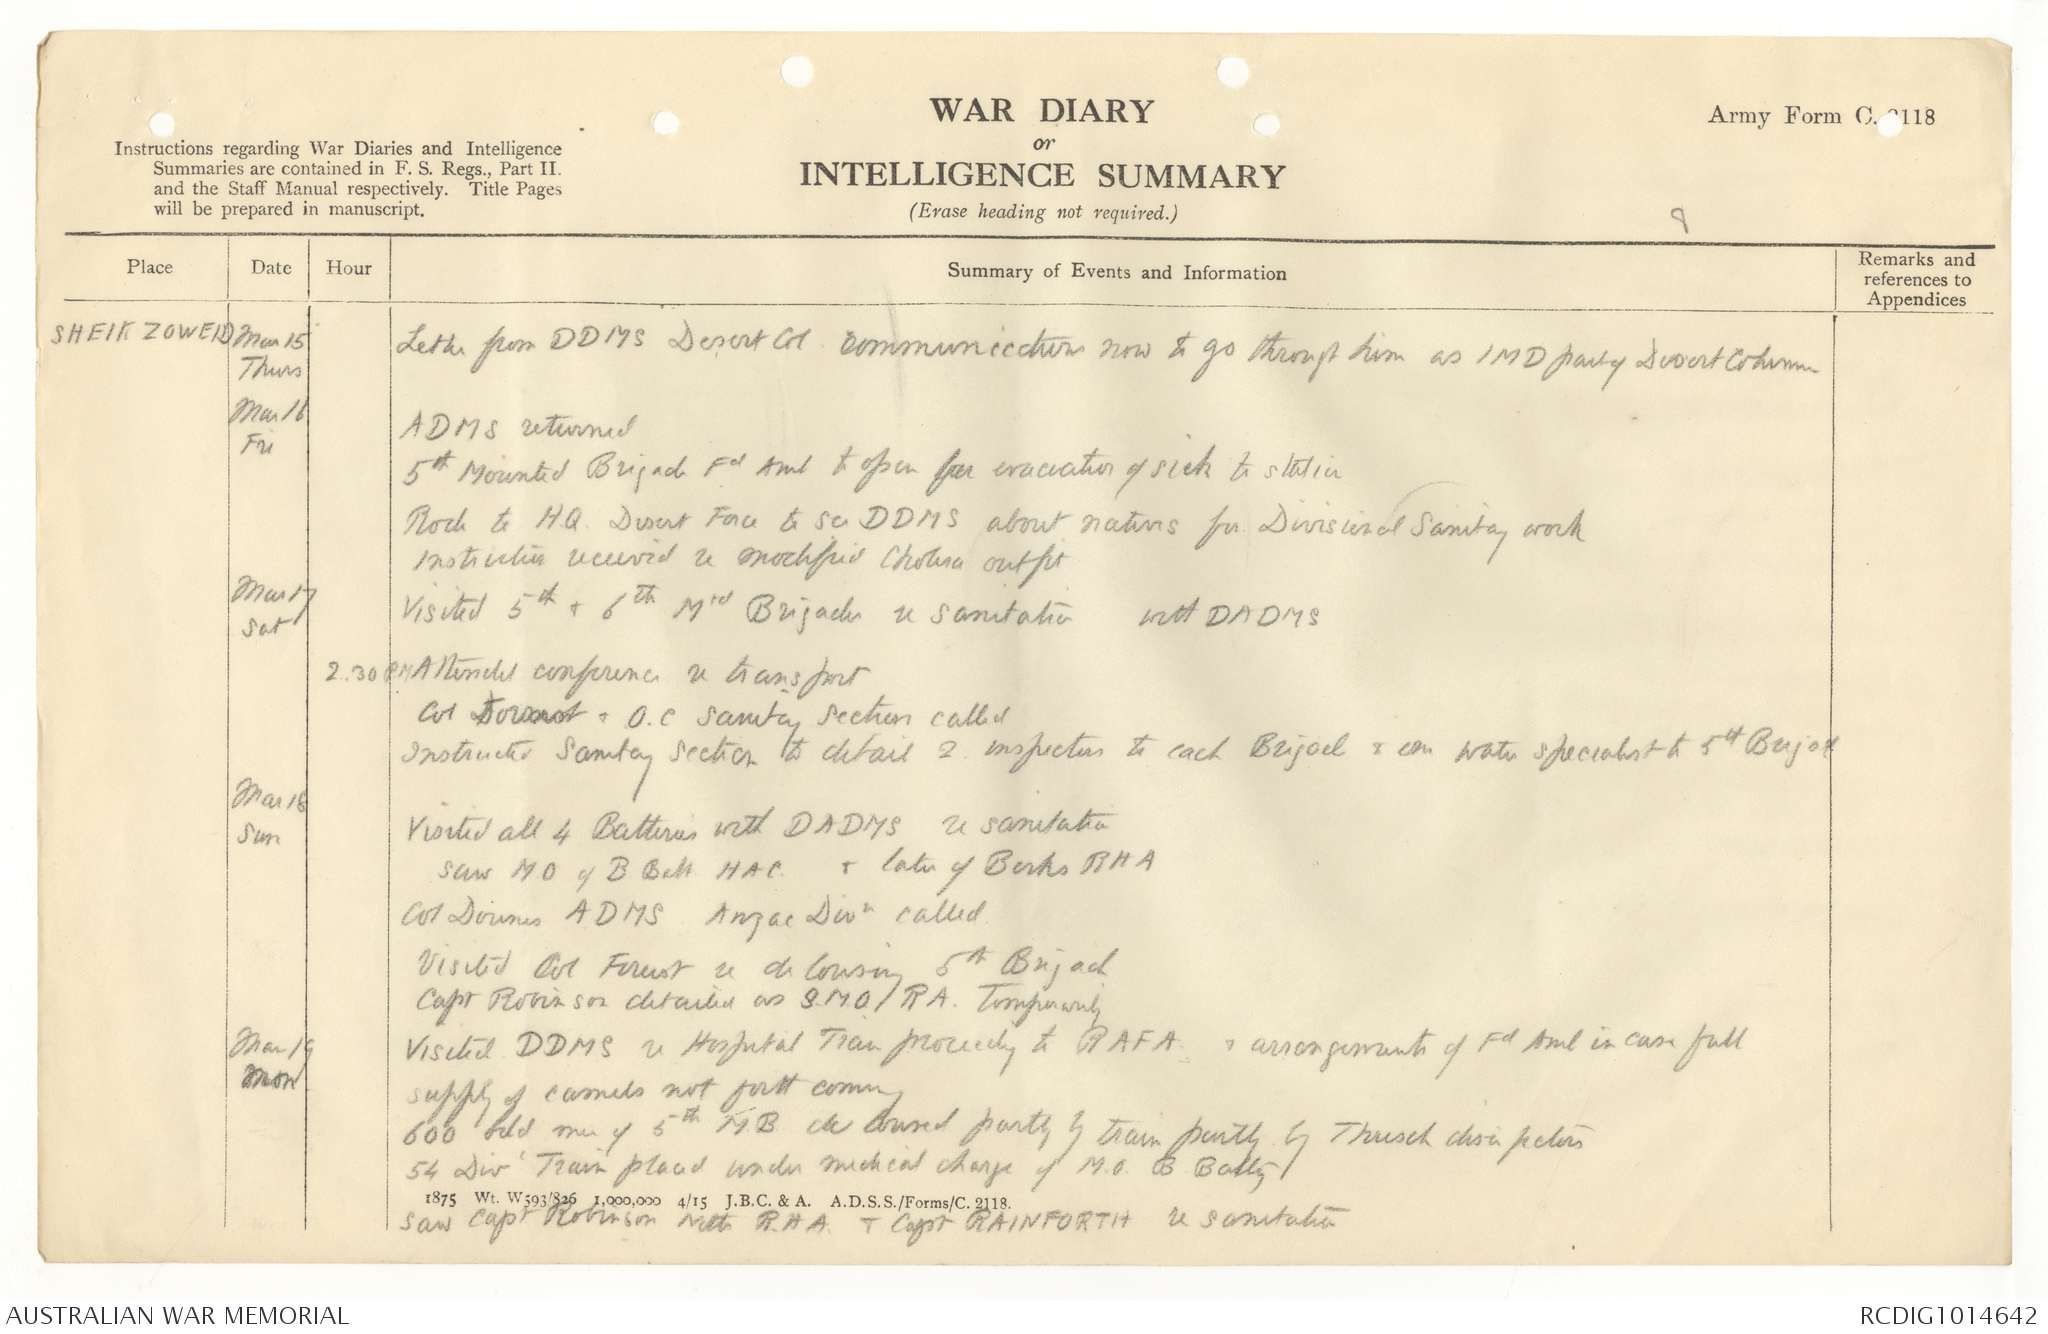 WAR DIARY
or
INTELLIGENCE SUMMARY
(Erase heading not required.)
Army Form C. 2118
Instructions regarding War Diaries and Intelligence
Summaries are contained in F. S. Regs., Part II.
and the Staff Manual respectively. Title Pages
will be prepared in manuscript.
8
Place Date Hour Summary of Events and Information Remarks and
references to
Appendices
SHEIK ZOWEID Mar 15 Letter from DDMS Desert Col communications now to go through him as IMD part of Desert Column
Thurs
Mar 16 ADMS returned
Fri
5th Mounted Brigade Fd Amb to open for evacuation of sick to station
Rode to H.Q. Desert Force to see DDMS about natives for Divisional Sanitary work
Instruction received re modified Cholera outfit
Mar 17 Visited 5th & 6th Mtd Brigades re sanitation with DADMS
Sat
2.30 PM Attended conference re transport
Col & O.C Sanitary Section called
Instructed Sanitary Section to detail 2 inspectors to each Brigade & one water specialist to 5th Brigade
Mar 18
Sun Visited all 4 Batteries with DADMS re sanitation
saw M.O of B Batt HAC & later of Berks RHA
Col Downes ADMS Anzac Divn called
Visited Col Forrest re delousing 5th Brigade
Capt Robinson detailed as S.M.O/RA. Temporarily
Mar 19 Visited DDMS re Hospital Train proceeding to RAFA & arrangements of Fd Amb in case full
Mon
supply of camels not forth coming
600 odd men of 5th M.B deloused partly by train partly by Thresh disinfectors
54 Div Train placed under medical charge of M.O. B Batty
1875 Wt. W593/826 1,000,000 4/15 J.B.C. & A. A.D.S.S./Forms/C. 2118.
saw Capt Robinson R.H.A. & Capt RAINFORTH re sanitation
AUSTRALIAN WAR MEMORIAL
RCDIG1014642